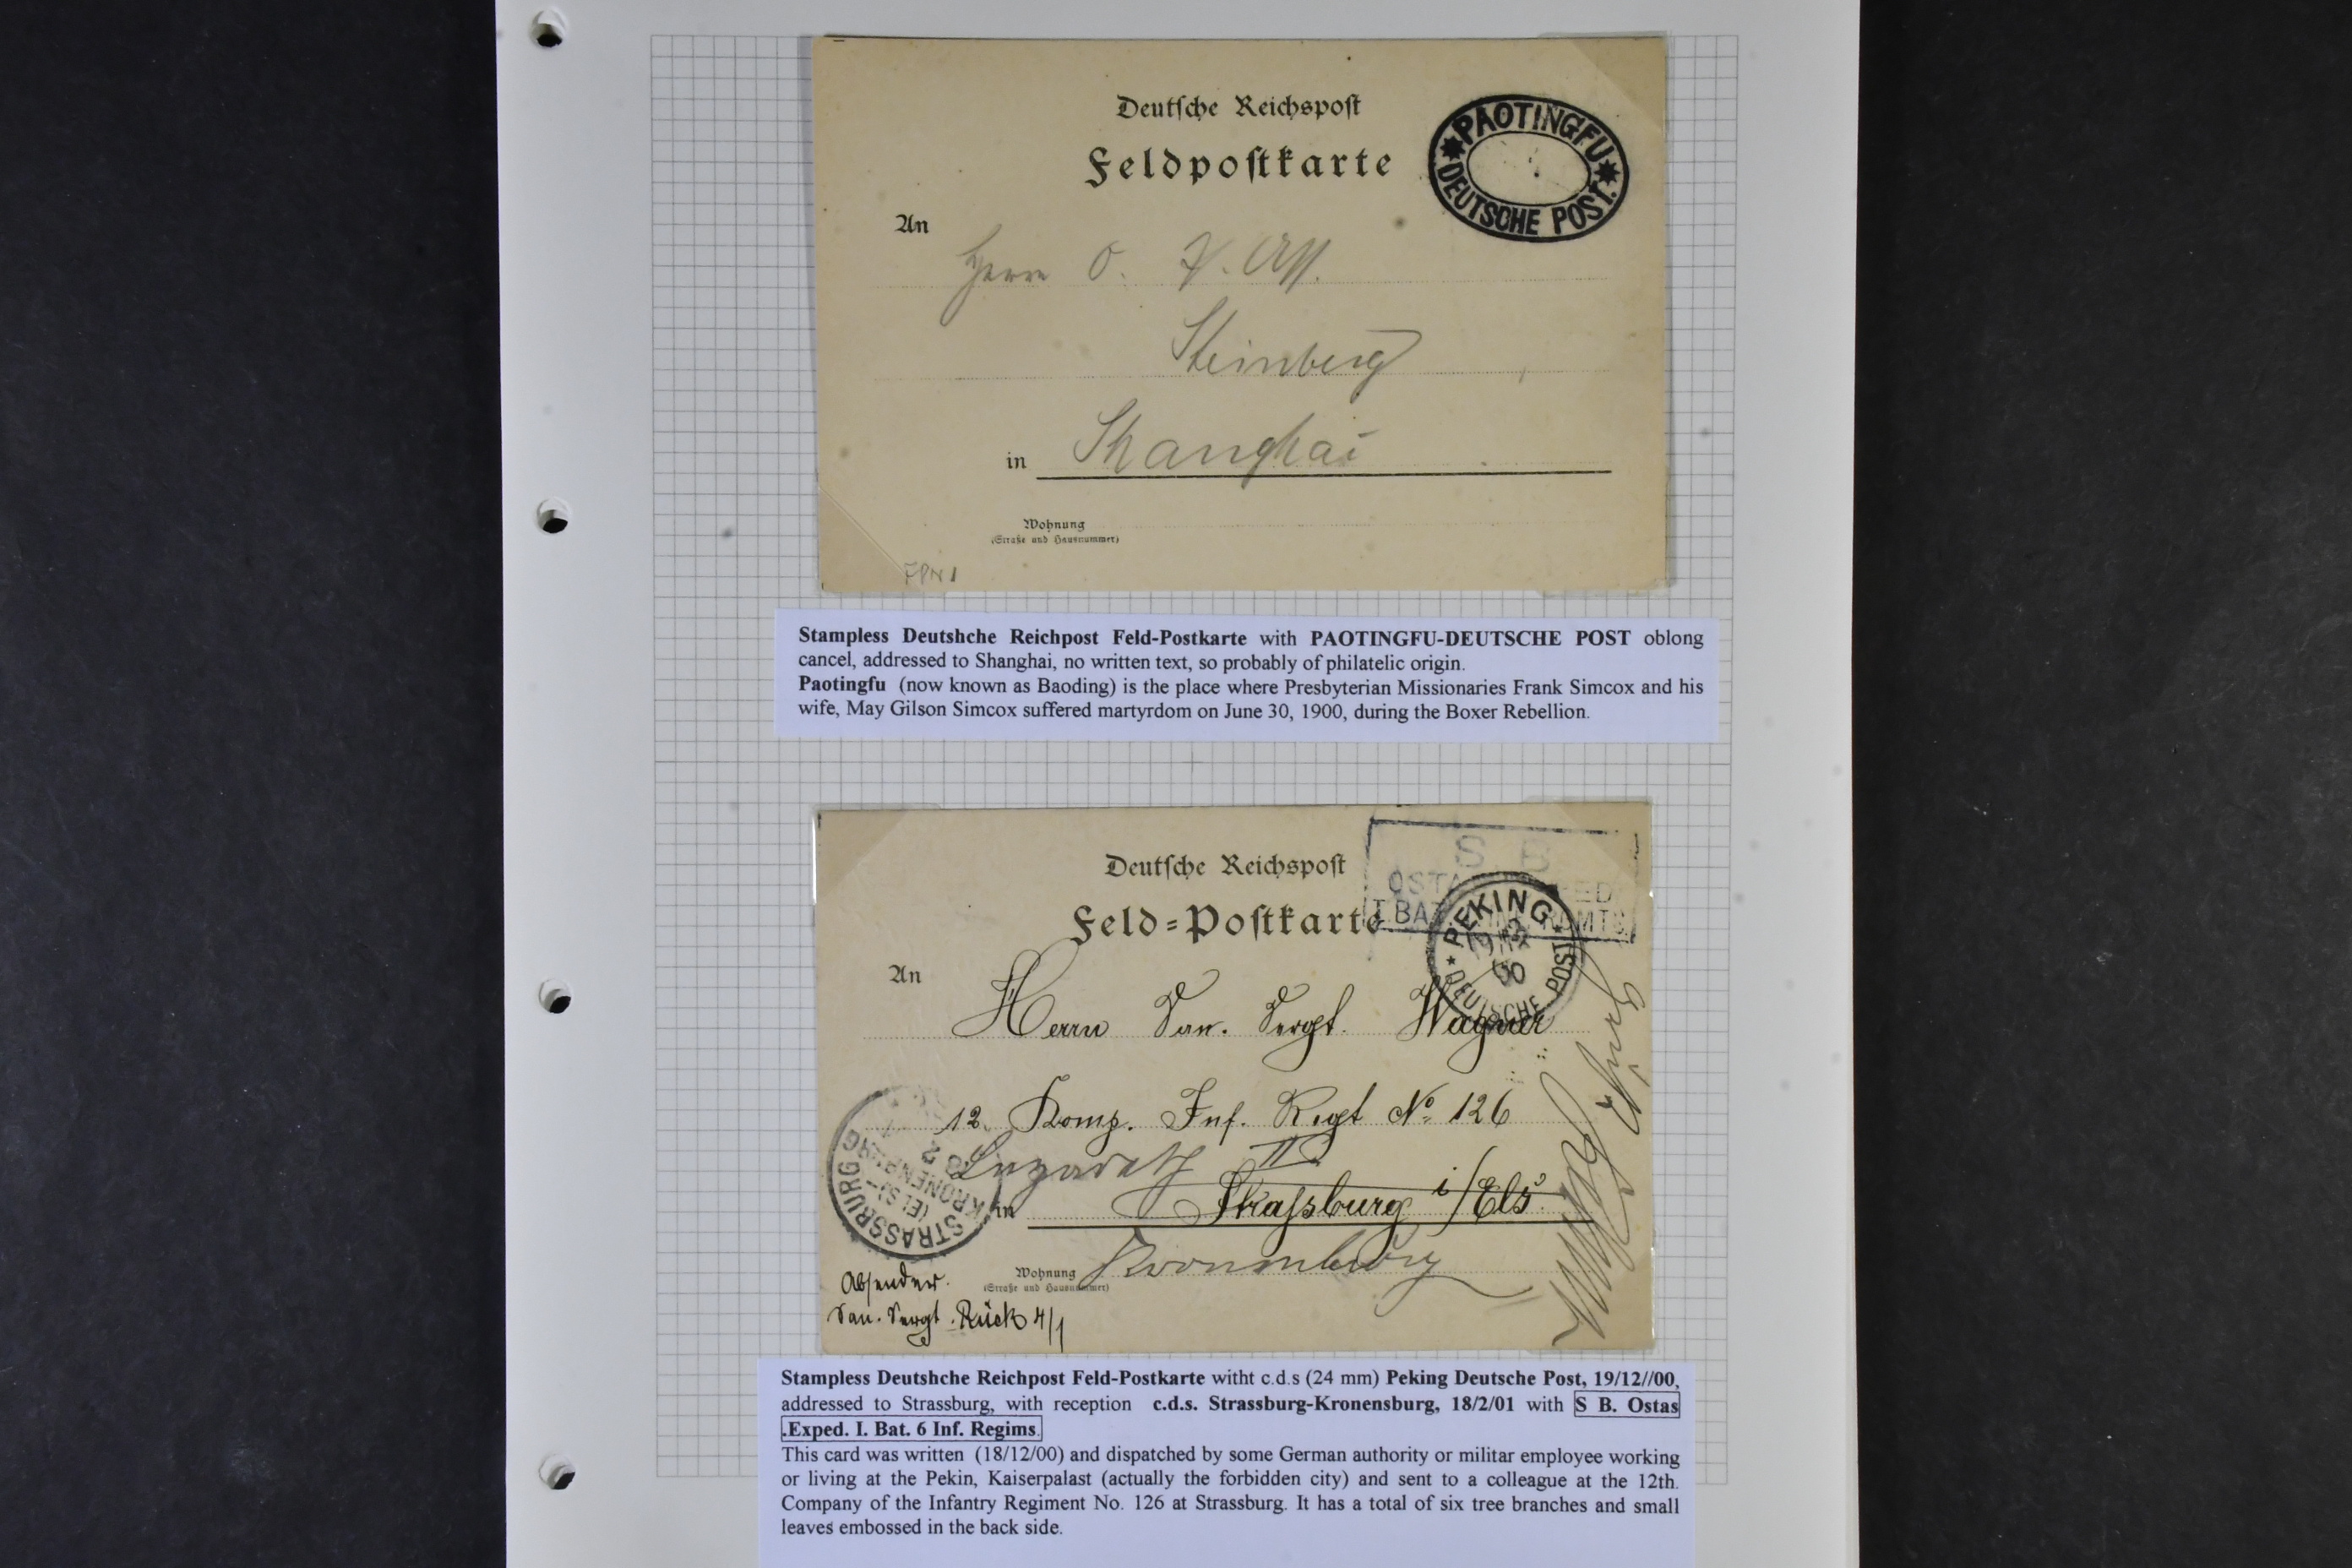 Deutsche Reichspost
Feldpostkarte
PAOTINGFU
DEUTSCHE POST.
An
Herrn O. F. Aff.
Steinberg
in Shanghai
Wohnung
(Straße und Hausnummer)
FPN 1
Stampless Deutshche Reichpost Feld-Postkarte with PAOTINGFU-DEUTSCHE POST oblong
cancel, addressed to Shanghai, no written text, so probably of philatelic origin.
Paotingfu (now known as Baoding) is the place where Presbyterian Missionaries Frank Simcox and his
wife, May Gilson Simcox suffered martyrdom on June 30, 1900, during the Boxer Rebellion.
S. B.
OSTA ED
I. BAT RGMTS.
Deutsche Reichspost
Feld-Postkarte
PEKING
19/12
00
DEUTSCHE POST
An
Herrn San. Sergt. Wagner
12. Komp. Inf. Regt No. 126
Lazareth II
in Strassburg i/Els.
Kronenburg
STRASSBURG
KRONENBURG
(ELS)
Wohnung
(Straße und Hausnummer)
Absender.
San. Sergt. Rück 4/1
Stampless Deutshche Reichpost Feld-Postkarte witht c.d.s (24 mm) Peking Deutsche Post, 19/12//00,
addressed to Strassburg, with reception c.d.s. Strassburg-Kronensburg, 18/2/01 with S B. Ostas
.Exped. I. Bat. 6 Inf. Regims.
This card was written (18/12/00) and dispatched by some German authority or militar employee working
or living at the Pekin, Kaiserpalast (actually the forbidden city) and sent to a colleague at the 12th.
Company of the Infantry Regiment No. 126 at Strassburg. It has a total of six tree branches and small
leaves embossed in the back side.